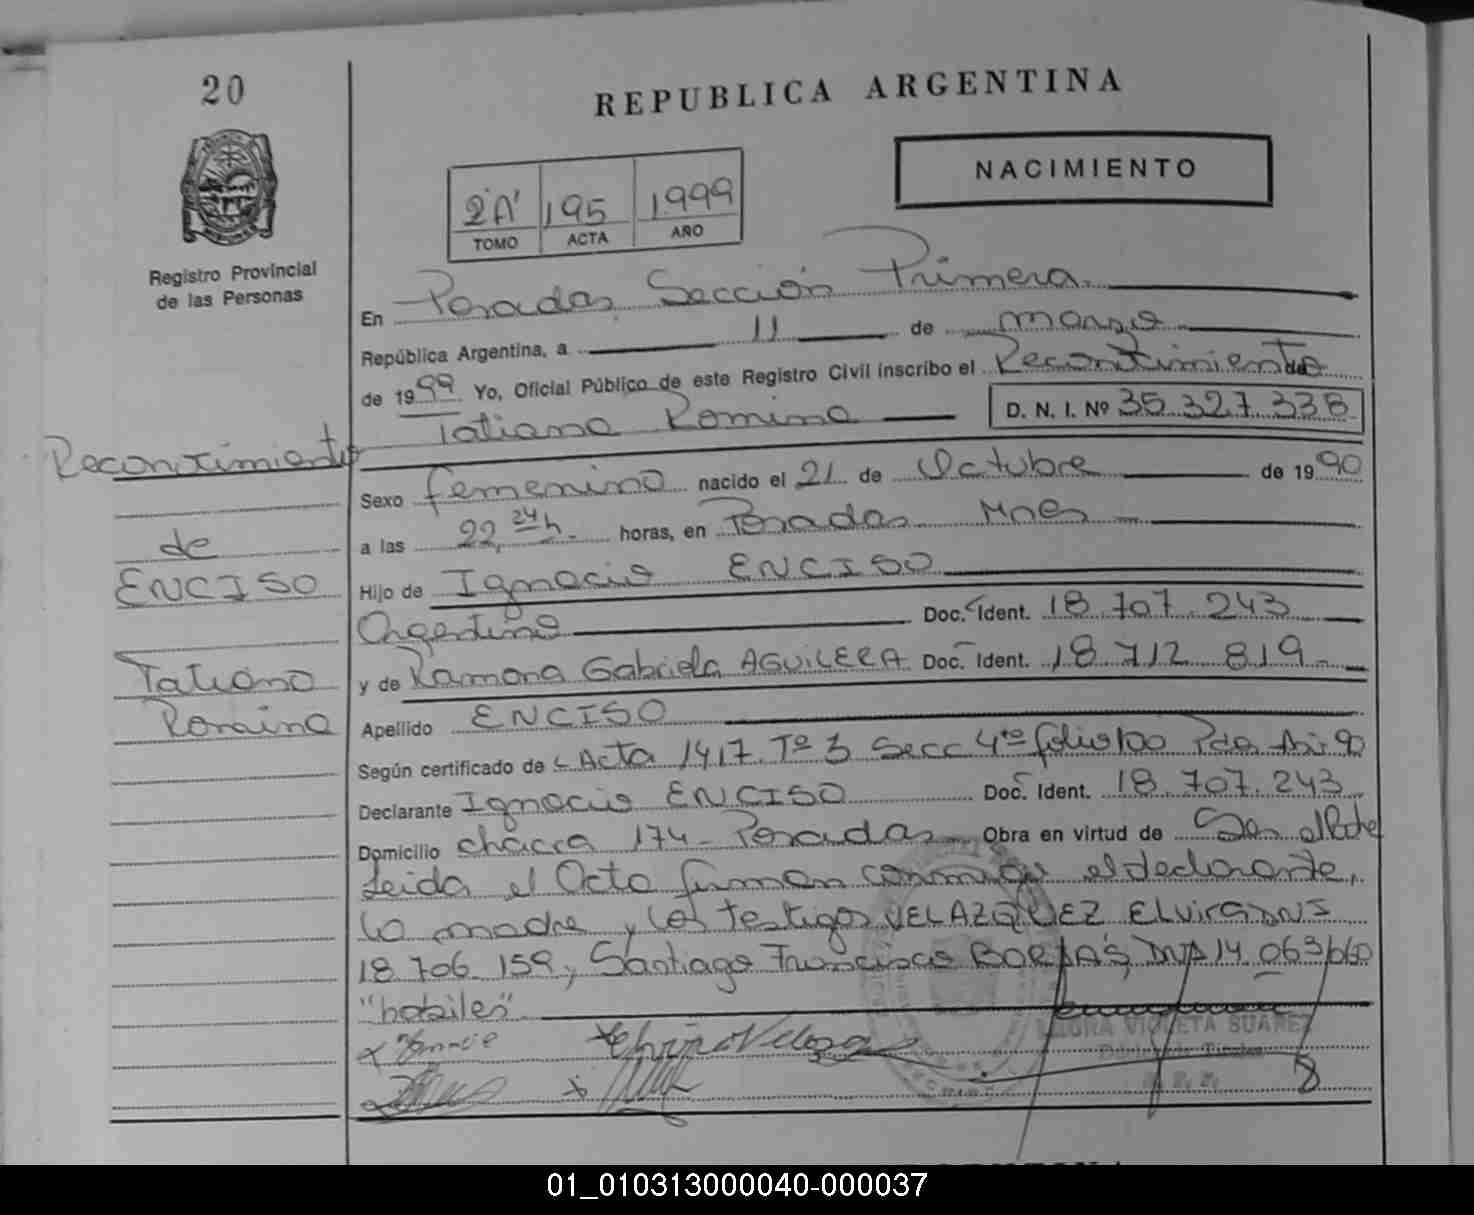 20
REPUBLICA ARGENTINA
NACIMIENTO
2'A' 195 1999
TOMO ACTA AÑO
Registro Provincial
de las Personas
En Posadas Sección Primera
República Argentina, a 11 de marzo
de 1999 Yo, Oficial Público de este Registro Civil inscribo el Reconocimiento de
Tatiana Romina D. N. I. Nº 35.327.338
Reconocimiento
de
ENCISO
Tatiana
Romina
Sexo femenino nacido el 21 de Octubre de 1990
a las 22,24 h. horas, en Posadas Mnes
Hijo de Ignacio ENCISO
Argentino Doc. Ident. 18.707.243
y de Ramona Gabriela AGUILERA Doc. Ident. 18.712.819
Apellido ENCISO
Según certificado de Acta 1417 Tº 3 Secc 4ta folio 100 Pdas 90
Declarante Ignacio ENCISO Doc. Ident. 18.707.243
Domicilio chacra 174 - Posadas Obra en virtud de Ser el Padre
Leida el Acta firman conmigo el declarante,
la madre y los testigos VELAZQUEZ Elvira DNI
18.706.159, Santiago Francisco BORJAS, DNI 14.063.660
"habiles"
LAURA VIOLETA SUAREZ
R. P. P.
01_010313000040-000037